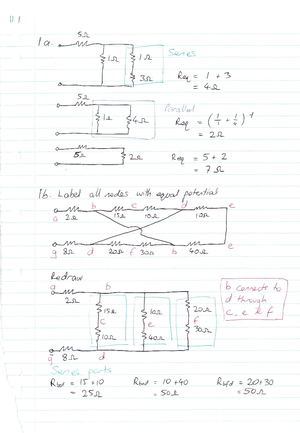 11 1
1a.
5Ω
1Ω
1Ω
3Ω
Series
Req = 1 + 3
= 4Ω
5Ω
1Ω
4Ω
Parallel
Req = (1/1 + 1/4)⁻¹
= 2Ω
5Ω
2Ω
Req = 5 + 2
= 7Ω
1b. Label all nodes with equal potential
b c d e
a 2Ω 15Ω 10Ω 10Ω
g 8Ω d 20Ω f 30Ω b 40Ω e
Redraw
a b
2Ω
15Ω 10Ω 20Ω
c e f
10Ω 40Ω 30Ω
g 8Ω d
b connects to
d through
c, e & f
Series parts
Rbcd = 15 + 10
= 25Ω
Rbed = 10 + 40
= 50Ω
Rbfd = 20 + 30
= 50Ω